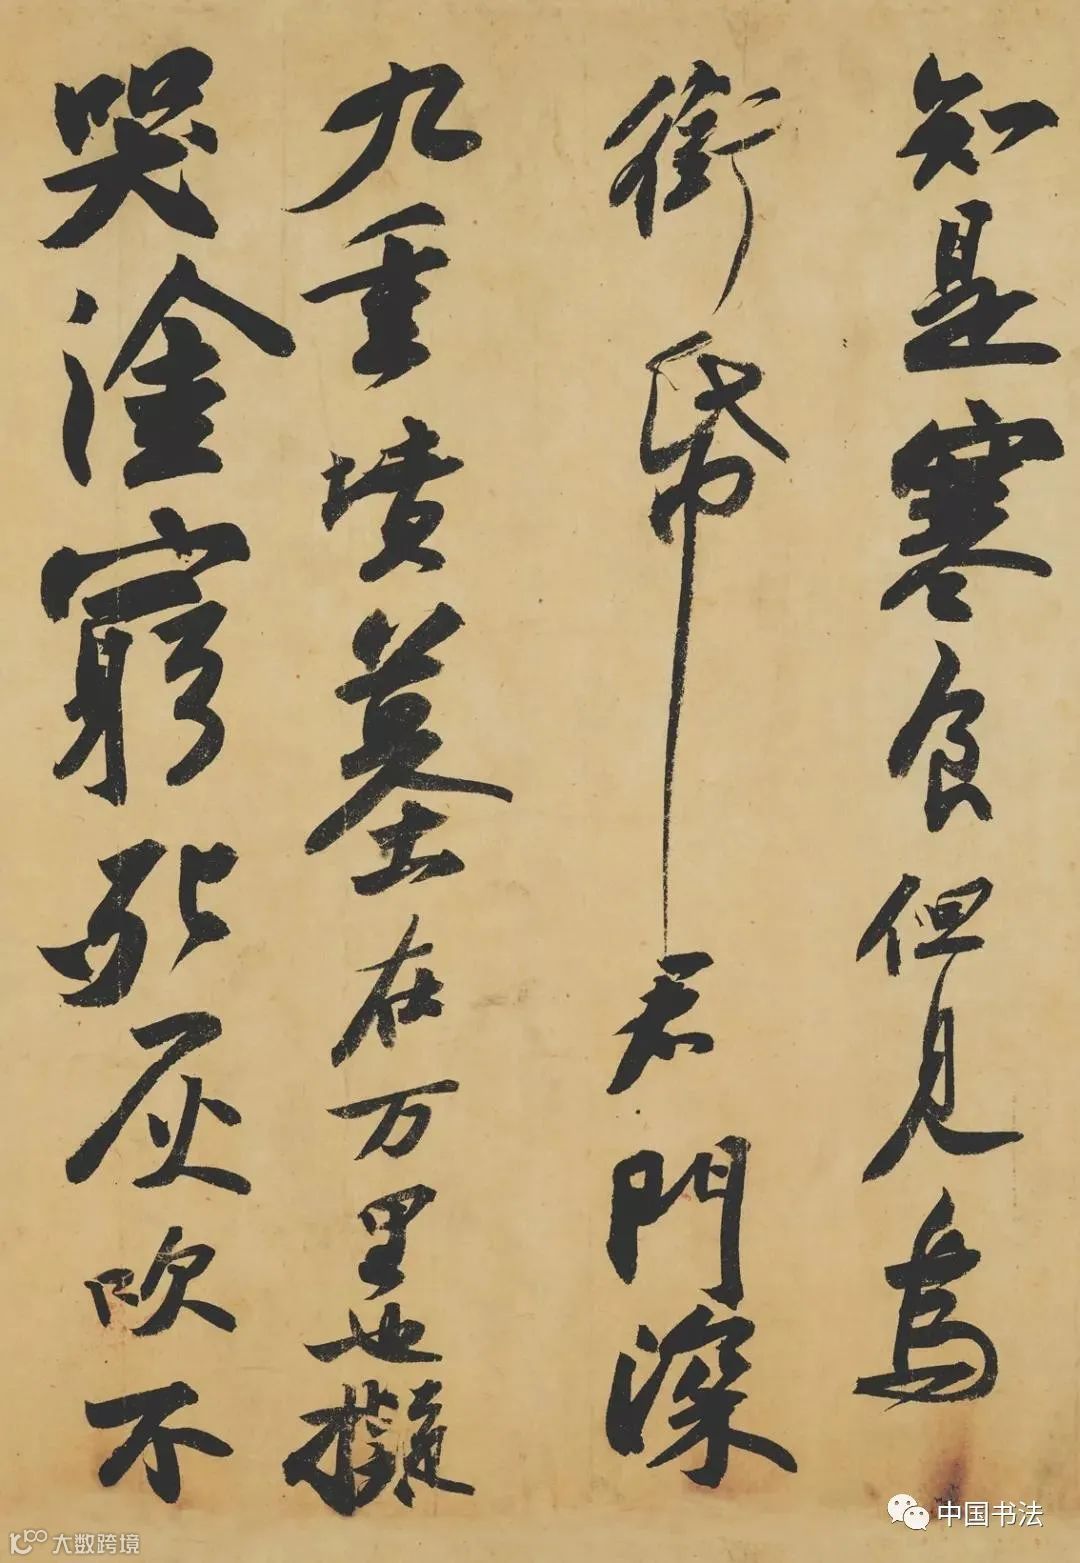 知是寒食但見烏
銜帋君門深
九重墳墓在万里也擬
哭塗窮死灰吹不
中国书法
大数跨境